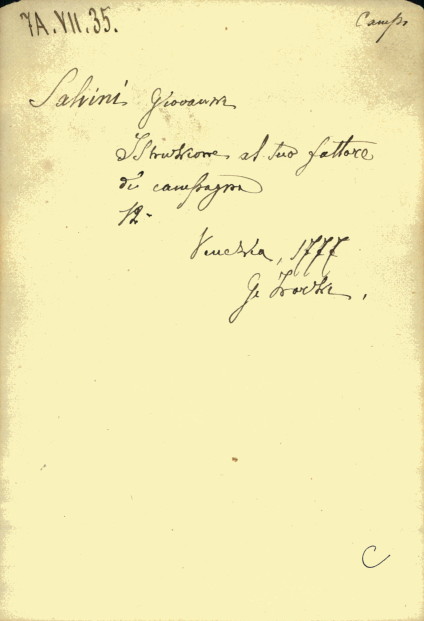 7A.VII.35.
Camps
Salvini Giovanni
Istruzione al suo fattore
di campagna
12-
Venezia, 1777
G
C